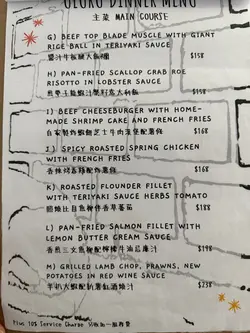 OLOKO DINNER MENU
主菜 MAIN COURSE
G) BEEF TOP BLADE MUSCLE WITH GIANT
RICE BALL IN TERIYAKI SAUCE
$158
H) PAN-FRIED SCALLOP CRAB ROE
RISOTTO IN LOBSTER SAUCE
$158
I) BEEF CHEESEBURGER WITH HOME-
MADE SHRIMP CAKE AND FRENCH FRIES
自家製蝦餅芝士牛肉漢堡配薯條
$168
J) SPICY ROASTED SPRING CHICKEN
WITH FRENCH FRIES
香辣烤春雞配薯條
$168
K) ROASTED FLOUNDER FILLET
WITH TERIYAKI SAUCE HERBS TOMATO
$188
L) PAN-FRIED SALMON FILLET WITH
LEMON BUTTER CREAM SAUCE
香煎三文魚柳配檸檬牛油忌廉汁
$198
M) GRILLED LAMB CHOP, PRAWNS, NEW
POTATOES IN RED WINE SAUCE
$238
Plus 10% Service Charge 另收加一服務費